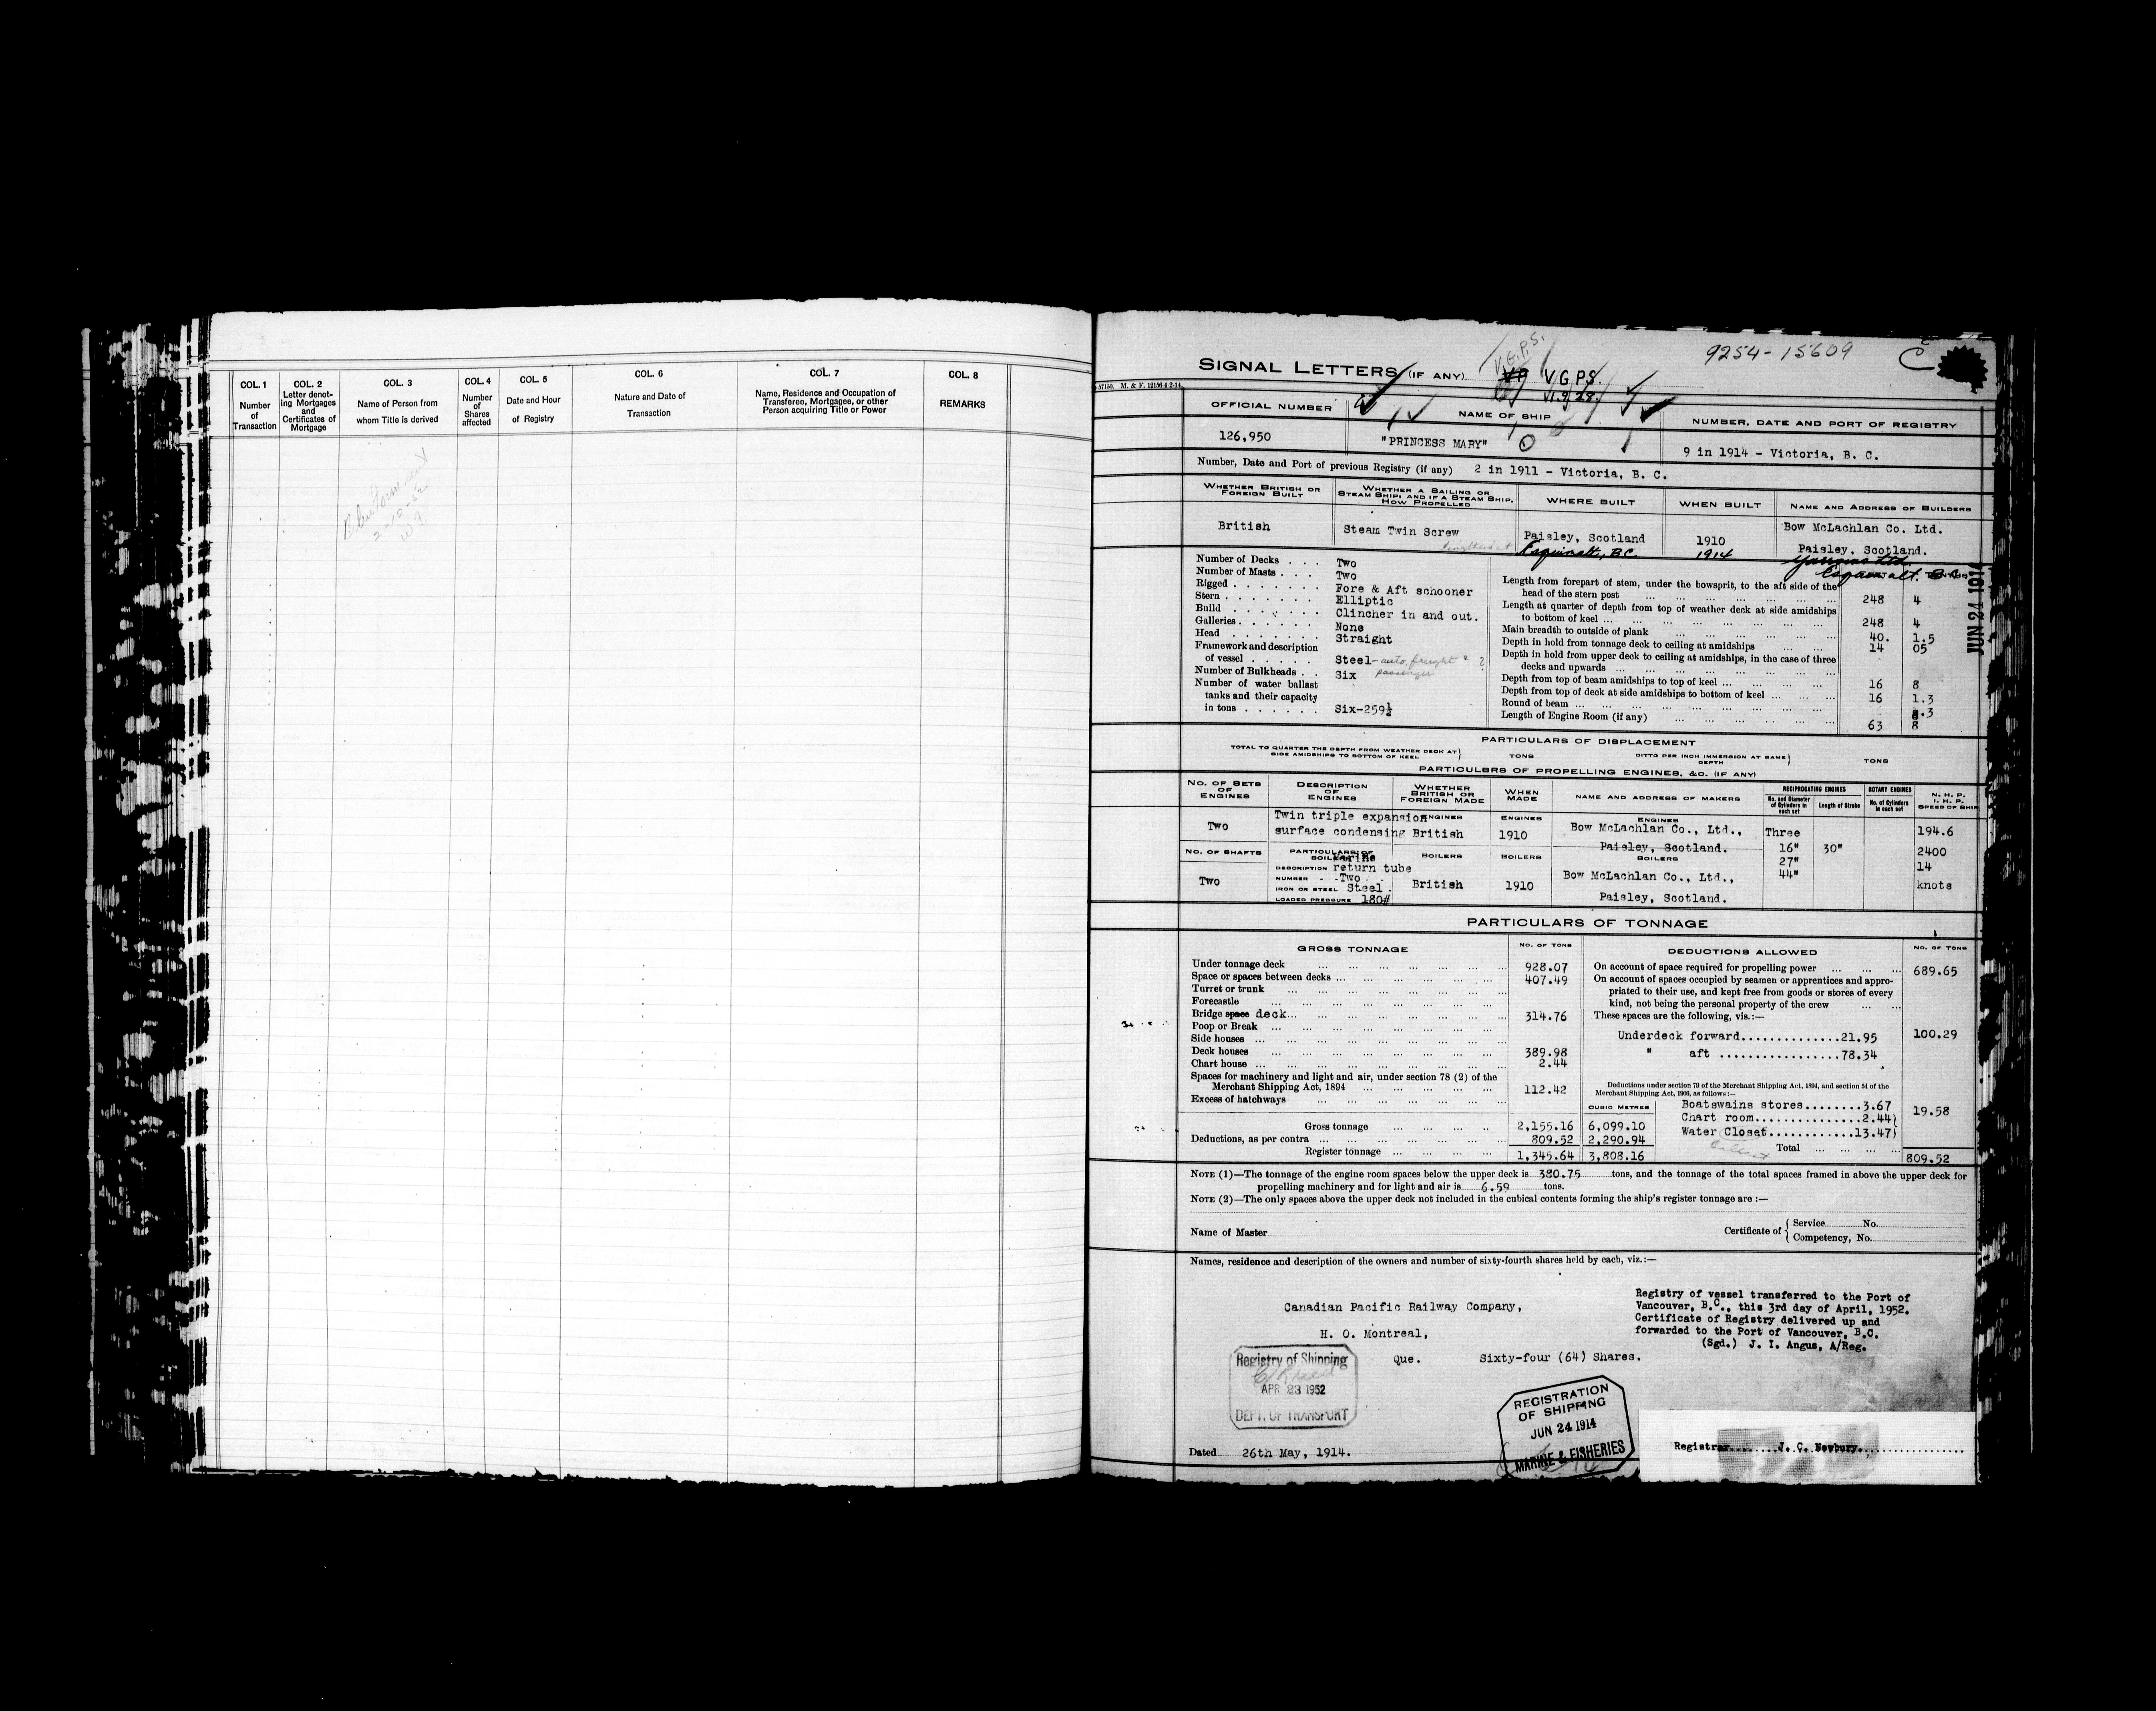 COL. 1
Number
of
Transaction
COL. 2
Letter denot-
ing Mortgages
and
Certificates of
Mortgage
COL. 3
Name of Person from
whom Title is derived
COL. 4
Number
of
Shares
affected
COL. 5
Date and Hour
of Registry
COL. 6
Nature and Date of
Transaction
COL. 7
Name, Residence and Occupation of
Transferee, Mortgagee, or other
Person acquiring Title or Power
COL. 8
REMARKS
9254-15609
V.G.P.S.
SIGNAL LETTERS (IF ANY) V.G.P.S.
57150. M. & F. 12156 4 2-14.
1.9/28.
OFFICIAL NUMBER
NAME OF SHIP
NUMBER, DATE AND PORT OF REGISTRY
126,950
"PRINCESS MARY"
9 in 1914 - Victoria, B. C.
Number, Date and Port of previous Registry (if any) 2 in 1911 - Victoria, B. C.
WHETHER BRITISH OR
FOREIGN BUILT
WHETHER A SAILING OR
STEAM SHIP; AND IF A STEAM SHIP,
HOW PROPELLED
WHERE BUILT
WHEN BUILT
NAME AND ADDRESS OF BUILDERS
British
Steam Twin Screw
Paisley, Scotland
1910
Bow McLachlan Co. Ltd.
Paisley, Scotland.
lengthened at Esquimalt, B.C.
1914
Yarrows Ltd
Esquimalt. B.C.
Number of Decks . . . Two
Number of Masts . . . Two
Rigged . . . . . . . Fore & Aft schooner
Stern . . . . . . . Elliptic
Build . . . . . . . Clincher in and out.
Galleries . . . . . . None
Head . . . . . . . Straight
Framework and description
of vessel . . . . . Steel-auto, freight & ?
passenger
Number of Bulkheads . . Six
Number of water ballast
tanks and their capacity
in tons . . . . . . Six-259½
Length from forepart of stem, under the bowsprit, to the aft side of the
head of the stern post 248 4
Length at quarter of depth from top of weather deck at side amidships
to bottom of keel 248 4
Main breadth to outside of plank 40. 1.5
Depth in hold from tonnage deck to ceiling at amidships 14 05
Depth in hold from upper deck to ceiling at amidships, in the case of three
decks and upwards
Depth from top of beam amidships to top of keel 16 8
Depth from top of deck at side amidships to bottom of keel 16 1.3
Round of beam .3
Length of Engine Room (if any) 63 8
PARTICULARS OF DISPLACEMENT
TOTAL TO QUARTER THE DEPTH FROM WEATHER DECK AT
SIDE AMIDSHIPS TO BOTTOM OF KEEL
TONS
DITTO PER INCH IMMERSION AT SAME
DEPTH
TONS
PARTICULBRS OF PROPELLING ENGINES, &C. (IF ANY)
NO. OF SETS
OF
ENGINES
DESCRIPTION
OF
ENGINES
WHETHER
BRITISH OR
FOREIGN MADE
WHEN
MADE
NAME AND ADDRESS OF MAKERS
RECIPROCATING ENGINES
No. and Diameter
of Cylinders in
each set
Length of Stroke
ROTARY ENGINES
No. of Cylinders
in each set
N. H. P.
I. H. P.
SPEED OF SHIP
Two
Twin triple expansion
surface condensing
ENGINES
British
ENGINES
1910
ENGINES
Bow McLachlan Co., Ltd.,
Paisley, Scotland.
Three
16"
27"
44"
30"
194.6
2400
14
knots
NO. OF SHAFTS
Two
PARTICULARS OF
BOILERS
Marine
DESCRIPTION return tube
NUMBER - -Two- -
IRON OR STEEL Steel .
LOADED PRESSURE 180#
BOILERS
British
BOILERS
1910
BOILERS
Bow McLachlan Co., Ltd.,
Paisley, Scotland.
PARTICULARS OF TONNAGE
GROSS TONNAGE
NO. OF TONS
Under tonnage deck 928.07
Space or spaces between decks 407.49
Turret or trunk
Forecastle
Bridge space deck 314.76
Poop or Break
Side houses
Deck houses 389.98
Chart house 2.44
Spaces for machinery and light and air, under section 78 (2) of the
Merchant Shipping Act, 1894 112.42
Excess of hatchways
CUBIC METRES
Gross tonnage 2,155.16 6,099.10
Deductions, as per contra 809.52 2,290.94
Register tonnage 1,345.64 3,808.16
DEDUCTIONS ALLOWED
NO. OF TONS
On account of space required for propelling power 689.65
On account of spaces occupied by seamen or apprentices and appro-
priated to their use, and kept free from goods or stores of every
kind, not being the personal property of the crew
These spaces are the following, vis.:—
Underdeck forward..............21.95 100.29
" aft .................78.34
Deductions under section 79 of the Merchant Shipping Act, 1894, and section 54 of the
Merchant Shipping Act, 1906, as follows:—
Boatswains stores........3.67
Chart room...............2.44) 19.58
Water Closet............13.47)
Total 809.52
NOTE (1)—The tonnage of the engine room spaces below the upper deck is 380.75 tons, and the tonnage of the total spaces framed in above the upper deck for
propelling machinery and for light and air is 6.59 tons.
NOTE (2)—The only spaces above the upper deck not included in the cubical contents forming the ship's register tonnage are :—
Name of Master
Certificate of { Service No.
Competency, No.
Names, residence and description of the owners and number of sixty-fourth shares held by each, viz.:—
Canadian Pacific Railway Company,
H. O. Montreal,
Que. Sixty-four (64) Shares.
Registry of vessel transferred to the Port of
Vancouver, B.C., this 3rd day of April, 1952.
Certificate of Registry delivered up and
forwarded to the Port of Vancouver, B.C.
(Sgd.) J. I. Angus, A/Reg.
Registry of Shipping
APR 23 1952
DEPT. OF TRANSPORT
REGISTRATION
OF SHIPPING
JUN 24 1914
MARINE & FISHERIES
Dated 26th May, 1914.
Registrar J. C. Newbury
JUN 24 191